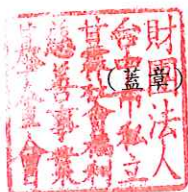 財團法人
台中市私立
甘霖社會福利
慈善事業
基金會
(蓋章)